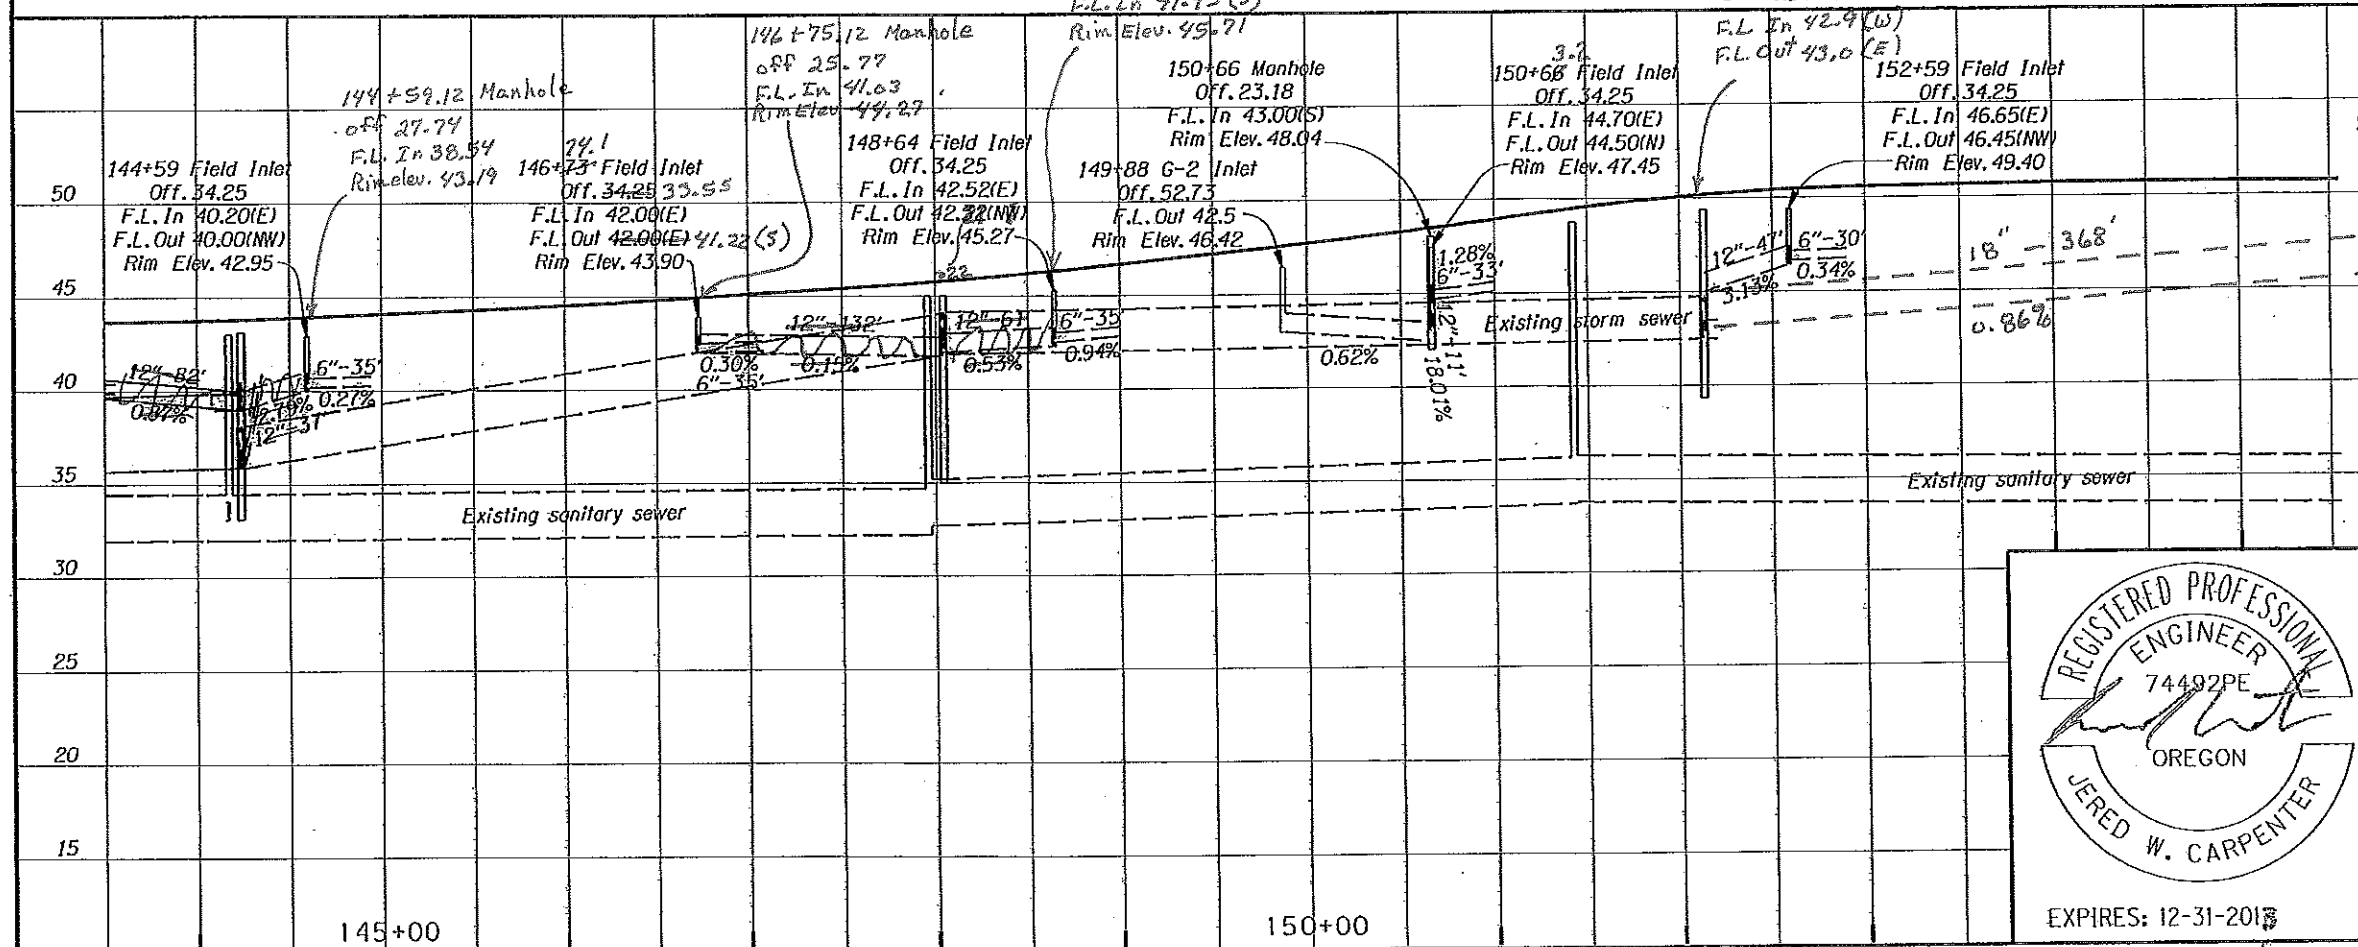 F.L. In 41.95 (S)
Rim Elev. 45.71
146+75.12 Manhole
off 25.77
F.L. In 41.03
Rim Elev 44.27
144+59.12 Manhole
off 27.74
F.L. In 38.54
Rim elev. 43.19
F.L In 42.9 (W)
F.L. Out 43.0 (E)
144+59 Field Inlet
Off. 34.25
F.L. In 40.20(E)
F.L. Out 40.00(NW)
Rim Elev. 42.95
74.1
146+73 Field Inlet
Off. 34.25 33.55
F.L. In 42.00(E)
F.L. Out 42.00(E) 41.22 (S)
Rim Elev. 43.90
148+64 Field Inlet
Off. 34.25
F.L. In 42.52(E)
F.L. Out 42.32(NW)
Rim Elev. 45.27
149+88 G-2 Inlet
Off. 52.73
F.L. Out 42.5
Rim Elev. 46.42
150+66 Manhole
Off. 23.18
F.L. In 43.00(S)
Rim Elev. 48.04
3.2
150+66 Field Inlet
Off. 34.25
F.L. In 44.70(E)
F.L. Out 44.50(N)
Rim Elev. 47.45
152+59 Field Inlet
Off. 34.25
F.L. In 46.65(E)
F.L. Out 46.45(NW)
Rim Elev. 49.40
50
45
40
35
30
25
20
15
12"-82'
0.87%
2.79%
12"-37'
6"-35'
0.27%
12"-132'
0.30%
0.15%
6"-35'
22
12"-61'
0.53%
6"-35'
0.94%
0.62%
1.28%
6"-33'
12"-11'
18.01%
Existing storm sewer
12"-47'
3.13%
6"-30'
0.34%
18" - 368'
0.86%
Existing sanitary sewer
Existing sanitary sewer
145+00
150+00
REGISTERED PROFESSIONAL
ENGINEER
74492PE
OREGON
JERED W. CARPENTER
EXPIRES: 12-31-2013